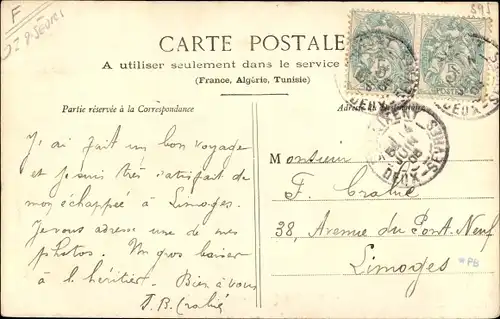 F
895
CARTE POSTALE
A utiliser seulement dans le service
(France, Algérie, Tunisie)
Partie réservée à la Correspondance
J'ai fait un bon voyage
et je suis très satisfait de
mon échappée à Limoges.
Je vous adresse une de mes
photos. Un gros baiser
à l'héritier. Bien à vous
5
5
POSTES
DEUX-SÈVRES
14
JUIN
05
DEUX-SEVRES
Monsieur
F. Crabié
38, Avenue du Pont-Neuf
Limoges
*PB